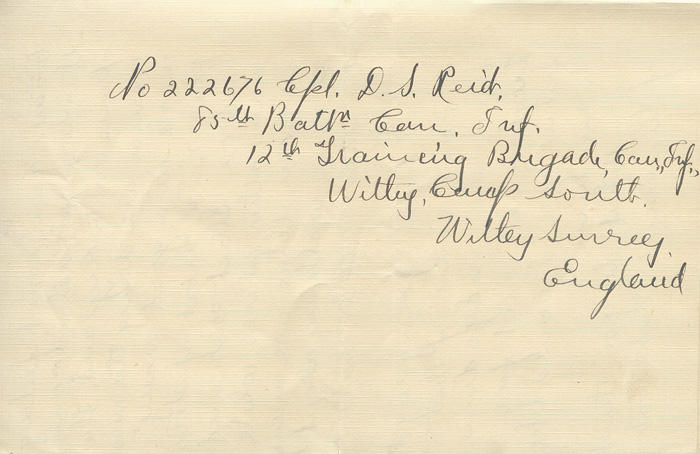 No 222676 Cpl. D. S. Reid,
85th Battn Can. Inf.
12th Training Brigade, Can, Inf.,
Witley, Camp South.
Witley Surrey
England